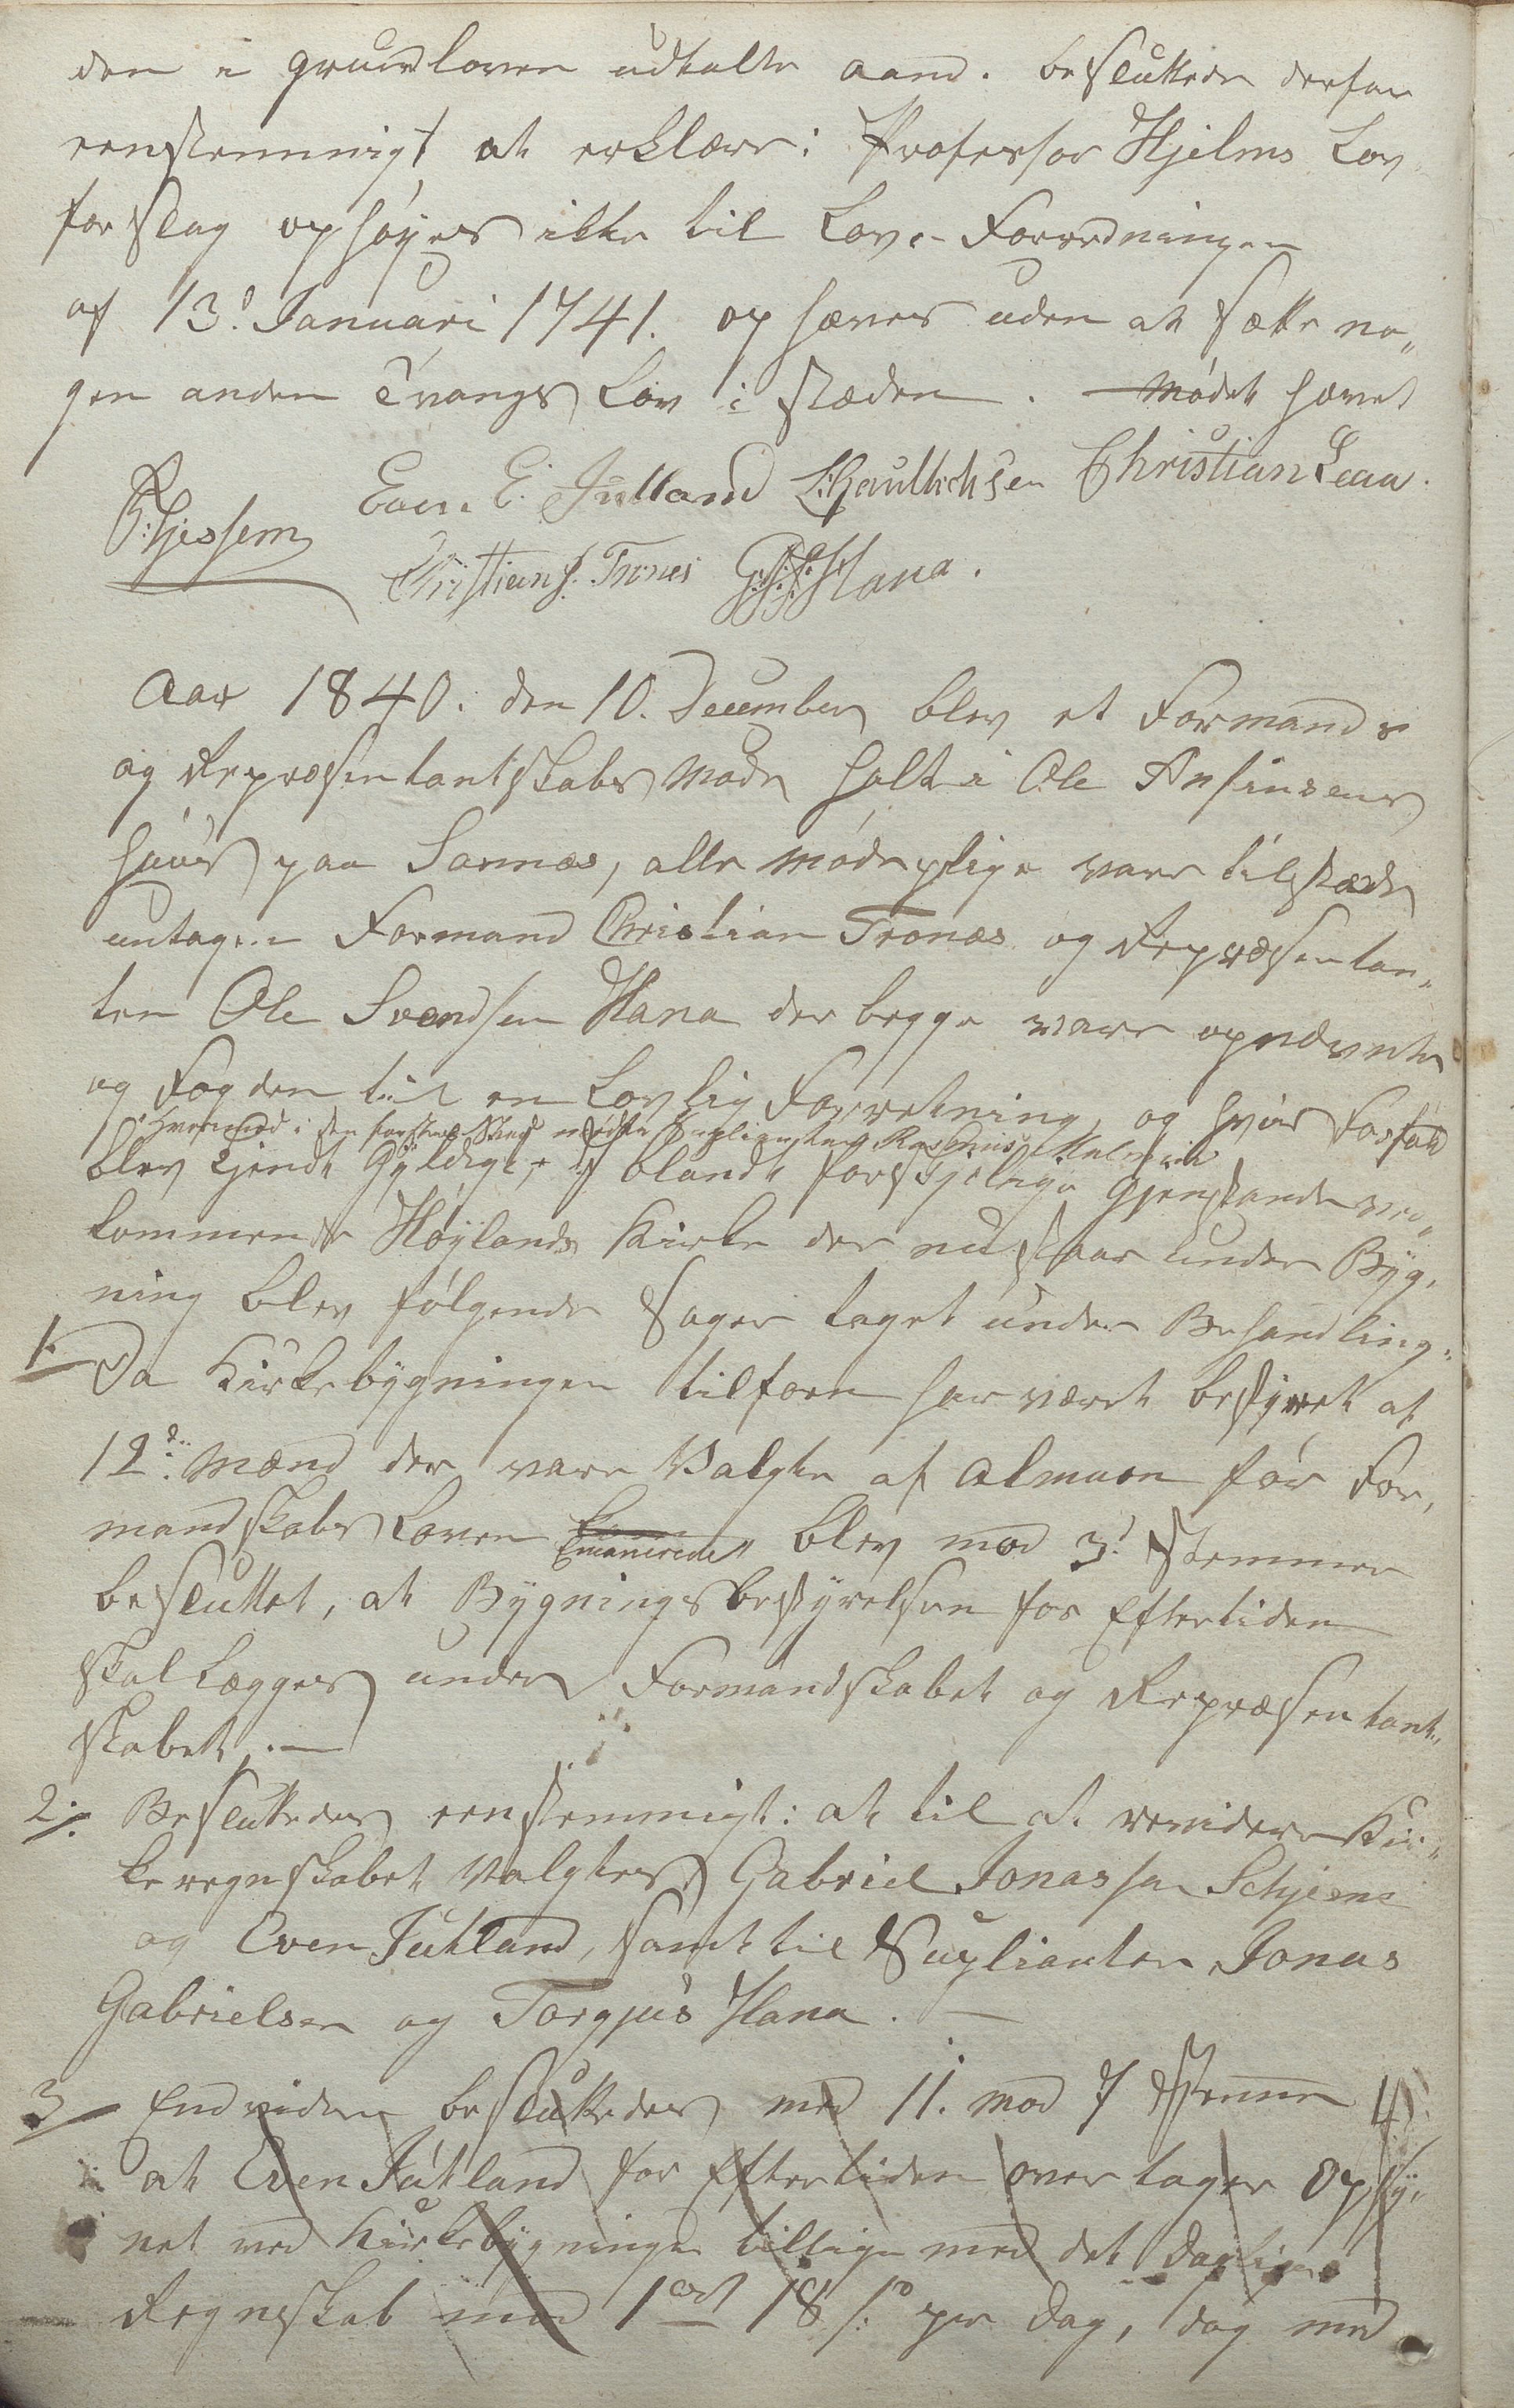 den i Grundloven udtalte Aand. besluttede derfor
eenstemmigt at erklære: Professor Hjelms Lov
forslag ophøyes ikke til Lov. - Forordningen
af 13d Januari 1741. ophæves uden at sætte no„
gen anden Tvangs Lov i stæden. — Mødet hævet
Even E. Jutland Christian Leaa.
Christian S. Trones Hana.
Aar 1840. den 10. December blev et Formands
og Repræsentantskabs Møde holt i Ole Ansinsens
huus paa Sannæs, alle Mødepligtige vare tilstæde
untagen Formand Christian Tronæs og Repræsentan„
ten Ole Svendsen Hana der begge vare opnævnte
og Fogden til en Lovlig Forretning, og hvis Forfald
hvormod i den førstes Sted mødte Suplianten Rasmus Malmin
blev kjendt Gyldigt, + J blandt forskjelige Gjenstande ved„
kommende Høylands Kirke der nu staar under Byg„
ning blev følgende Sager taget under Behandling.
1. Da Kirkebygningen tilforn har været bestyret af
12d. Mænd der vare Valgte af Almuen før For„
mandskabs Loven Emanerede blev mod 3d Stemmer
besluttet, at Bygningsbestyrelsen for Eftertiden
skal Lægges under Formandskabet og Repræsentant„
skabet. —
2. Besluttedes eenstemmigt: at til at revidere Kir„
keregnskabet Valgtes Gabriel Jonassen Schjeene
og Even Jutland, samt til Suplianter Jonas
Gabrielsen og Torgjus Hana. —
3 Endvidere besluttedes med 11. mod 7 Stemmer
at Even Jutland for Eftertiden overtager Opsy„
net ved Kirkebygningen tillige med det daglige
Regnskab mod 1 ort 18 s. pr Dag, dog med